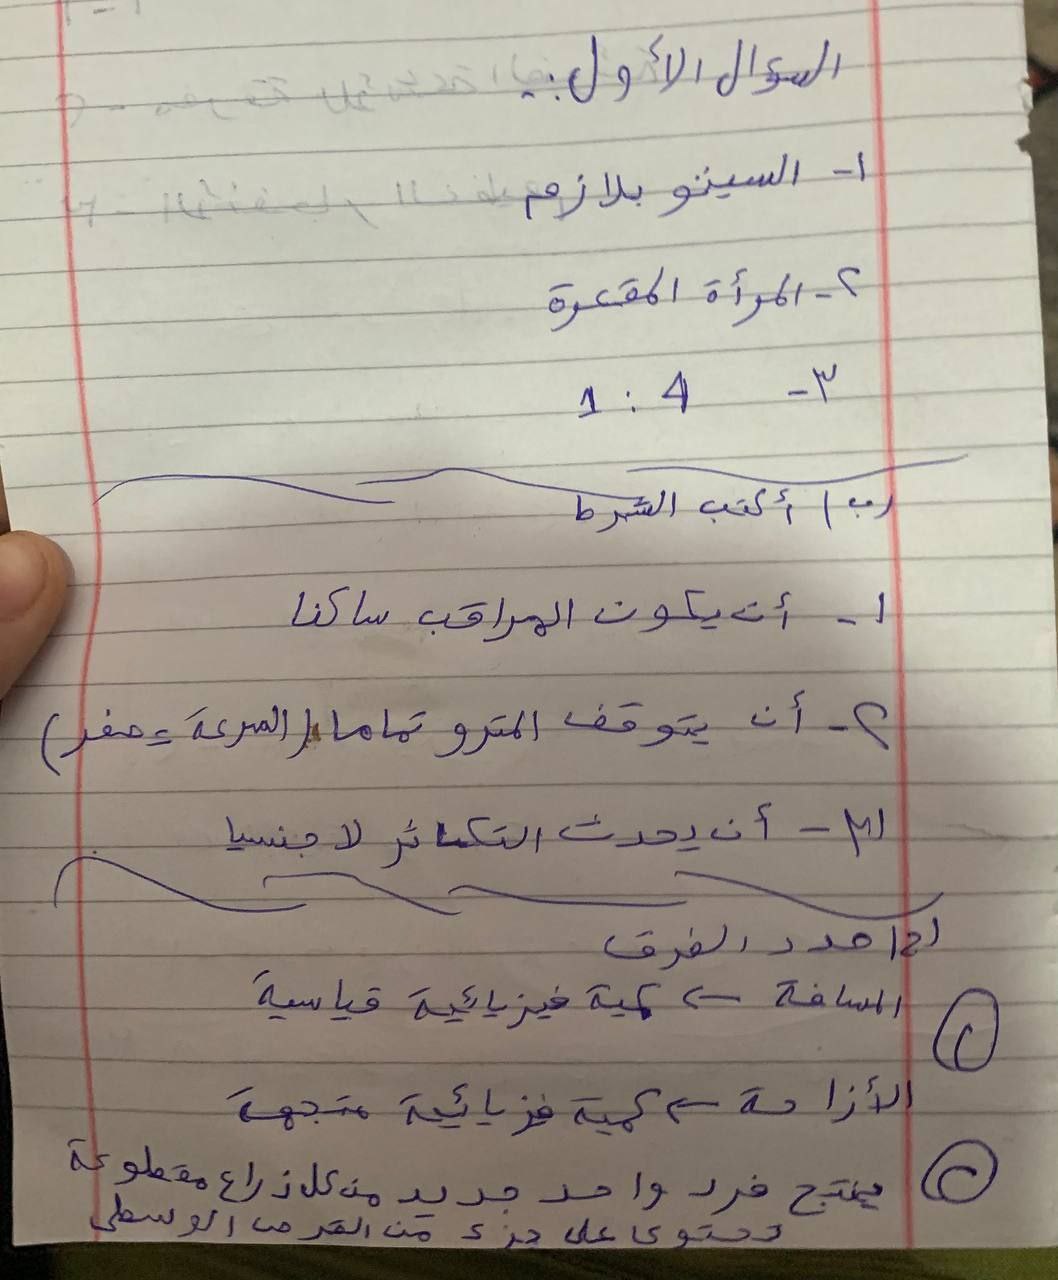 السؤال الأول:
١- السيتو بلازم
٢- المرأة المقعرة
٣- 4 : 1
(ب) أكتب الشرط
١- أن يكون المراقب ساكنا
٢- أن يتوقف المترو تماما (السرعة = صفر)
٣- أن يحدث التكاثر لا جنسيا
(ج) حدد الفرق
١ المسافة ← كمية فيزيائية قياسية
الأزاحة ← كمية فزيائية متجهة
٢ ينتج فرد واحد جديد من كل زراع مقطوعة
تحتوى على جزء من القرص الوسطى